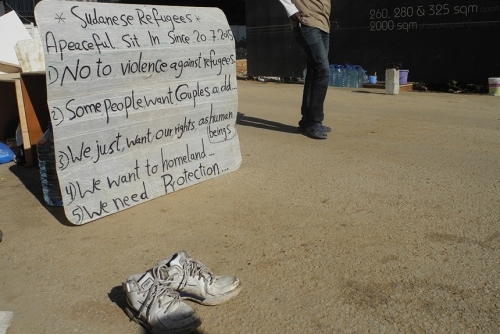 * Sudanese Refugees *
A peaceful Sit In Since 20.7.2015
1) No to violence against refugees
2) Some people Want Couples a, dd...
3) We just, want our rights, as human
beings
4) We want to homeland...
5) We need Protection...
260, 280 & 325 sqm
2000 sqm